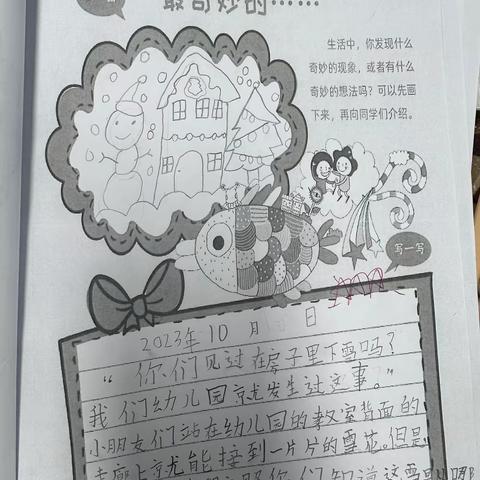 最奇妙的……
生活中，你发现什么
奇妙的现象，或者有什么
奇妙的想法吗？可以先画
下来，再向同学们介绍。
写一写
2023年10月 日
“你们见过在房子里下雪吗？
我们幼儿园就发生过这事。”
小朋友们站在幼儿园的教室背面的
走廊上就能接到一片片的雪花。但是
你们知道这雪是